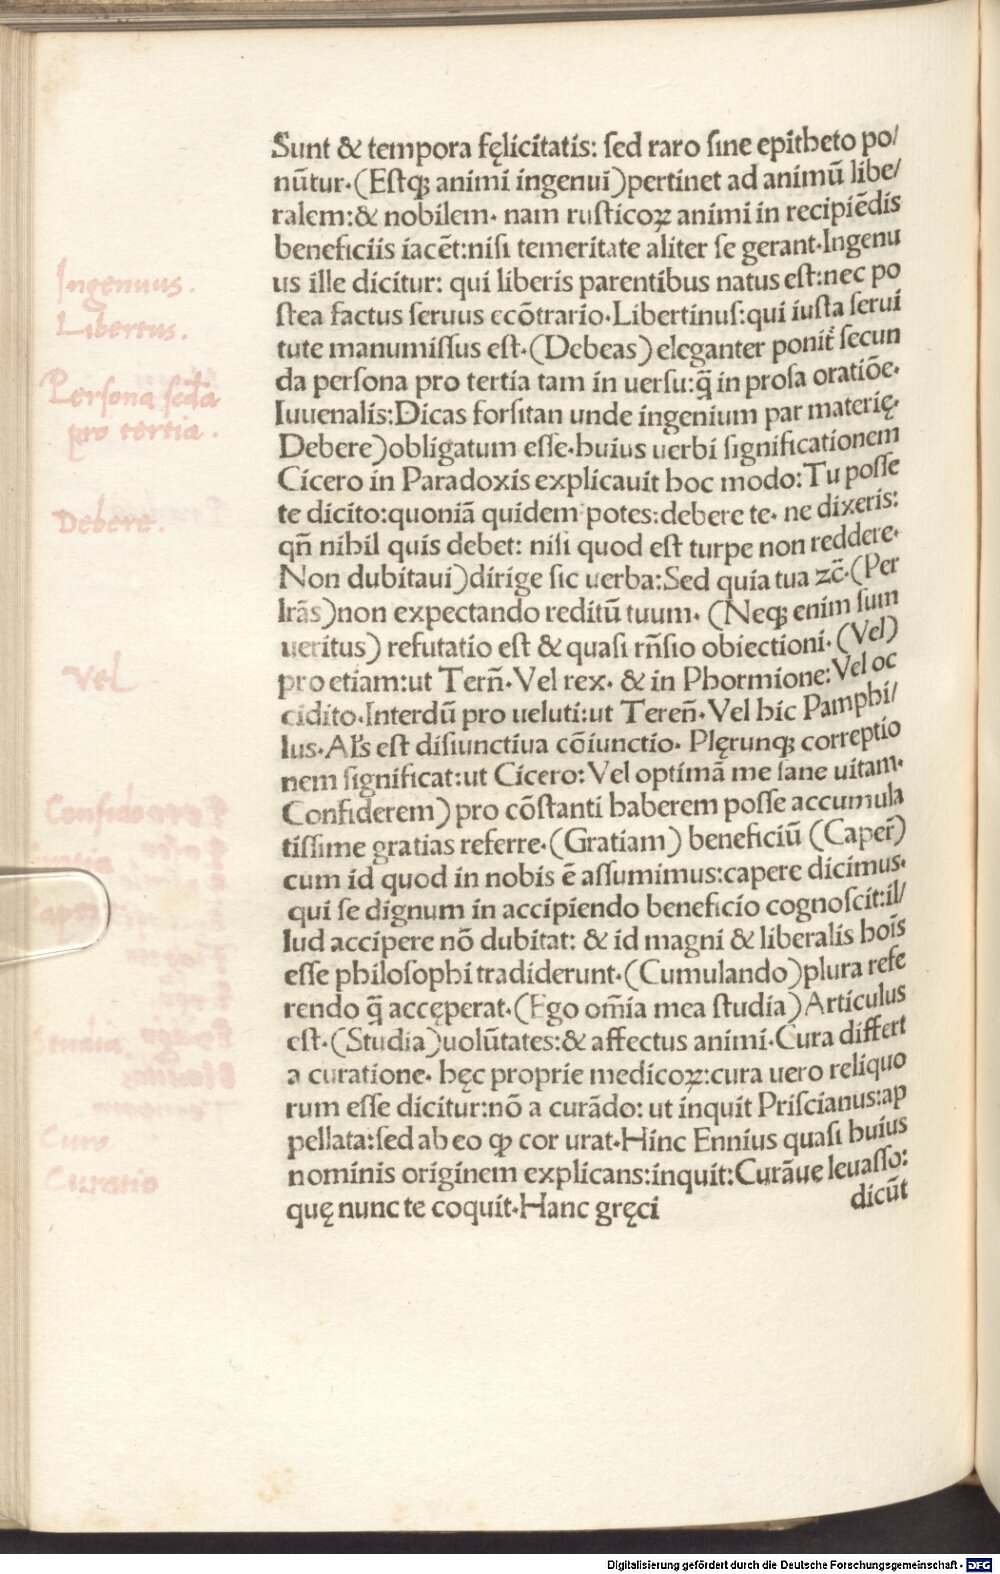 Sunt & tempora fęlicitatis: ſed raro ſine epitheto po/
nūtur·(Eſtqꝫ animi ingenui)pertinet ad animū libe/
ralem:& nobilem· nam ruſticoꝝ animi in recipiēdis
beneficiis iacēt:niſi temeritate aliter ſe gerant·Ingenu
us ille dicitur: qui liberis parentibus natus eſt:nec po
ſtea factus ſeruus ecōtrario·Libertinuſ:qui iuſta ſerui
tute manumiſſus eſt·(Debeas)eleganter ponit̄ ſecun
da perſona pro tertia tam in uerſu:q̄ in proſa oratiōe·
Iuuenalis:Dicas forſitan unde ingenium par materię·
Debere)obligatum eſſe·huius uerbi ſignificationem
Cicero in Paradoxis explicauit hoc modo:Tu poſſe
te dicito:quoniā quidem potes:debere te· ne dixeris:
qn̄ nihil quis debet: niſi quod eſt turpe non reddere·
Non dubitaui)dirige ſic uerba:Sed quia tua ⁊c̄·(Per
lrās)non expectando reditū tuum· (Neqꝫ enim ſum
ueritus) refutatio eſt & quaſi rn̄ſio obiectioni·(Vel)
pro etiam:ut Tern̄·Vel rex· & in Phormione:Vel oc
cidito·Interdū pro ueluti:ut Teren̄·Vel hic Pamphi/
lus·Al's eſt diſiunctiua cōiunctio· Plęrunqꝫ correptio
nem ſignificat:ut Cicero:Vel optimā me ſane uitam·
Confiderem) pro cōſtanti haberem poſſe accumula
tiſſime gratias referre·(Gratiam) beneficiū (Caper̄)
cum id quod in nobis ē aſſumimus:capere dicimus·
qui ſe dignum in accipiendo beneficio cognoſcit:il/
lud accipere nō dubitat: & id magni & liberalis hoīs
eſſe philoſophi tradiderunt·(Cumulando)plura refe
rendo q̄ accęperat·(Ego om̄ia mea ſtudia)Articulus
eſt·(Studia)uolūtates:& affectus animi·Cura differt
a curatione· hęc proprie medicoꝝ:cura uero reliquo
rum eſſe dicitur:nō a curādo: ut inquit Priſcianus:ap
pellata:ſed ab eo ꝙ cor urat·Hinc Ennius quaſi huius
nominis originem explicans:inquit:Curāue leuaſſo:
quę nunc te coquit·Hanc gręci dicūt
Ingenuus.
Libertus.
Perſona ſcd̄a
pro tertia.
Debere.
Vel
Confido
Studia
Cura
Curatio
Digitalisierung gefördert durch die Deutsche Forschungsgemeinschaft - DFG